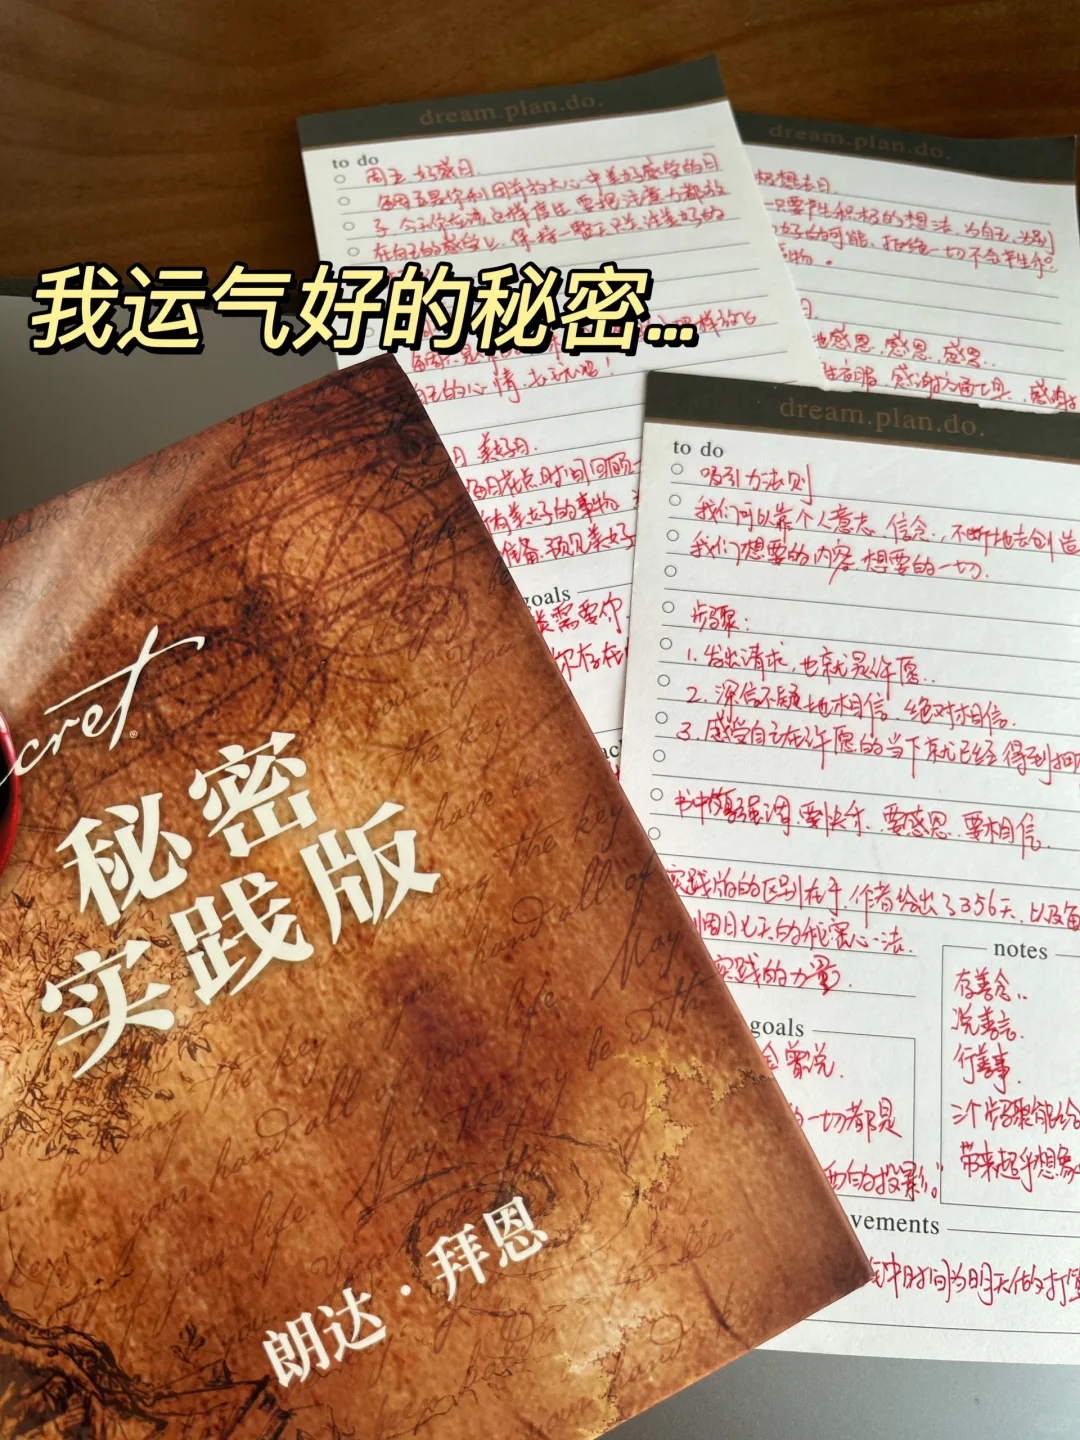 我运气好的秘密...
dream.plan.do.
to do
周五 好感日.
每周五是你利用并放大心中美好感觉的日
子,今天你应该这样度过,要把注意力都放
在自己的感觉上,保持一整天只关注美好的
的心情,去玩吧!
日 美好日.
每日花点时间回顾
有美好的事物
准备.预见美好
goals
需要你
你存在
dream.plan.do.
极想法日
只要产生积极的想法,为自己,为别
好的可能,拒绝一切不会产生
物.
日.
地感恩.感恩.感恩..
衣服,感谢交通工具,感谢
dream.plan.do.
to do
吸引力法则
我们可以靠个人意志,信念.,不断地去创造
我们想要的内容.想要的一切.
步骤:
1.发出请求,也就是许愿..
2.深信不疑地相信.绝对相信.
3.感觉自己在许愿的当下就已经得到
书中强调.要快乐.要感恩.要相信.
实践版的区别在于,作者给出了356天,以及
周月七天的秘密心法.
实践的力量.
goals
曾说.
一切都是
的投影。
notes
存善念..
说善言.
行善事.
三个步骤能给
带来超乎想象
vements
时间为明天做打算
cret®
秘密
实践版
朗达·拜恩